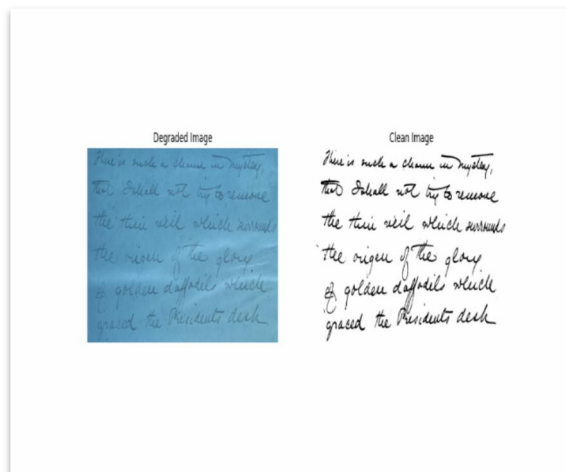 Degraded Image
There is such a charm in mystery,
that I shall not try to remove
the thin veil which surrounds
the origin of the glory
of golden daffodils which
graced the Presidents desk
Clean Image
There is such a charm in mystery,
that I shall not try to remove
the thin veil which surrounds
the origin of the glory
of golden daffodils which
graced the Presidents desk